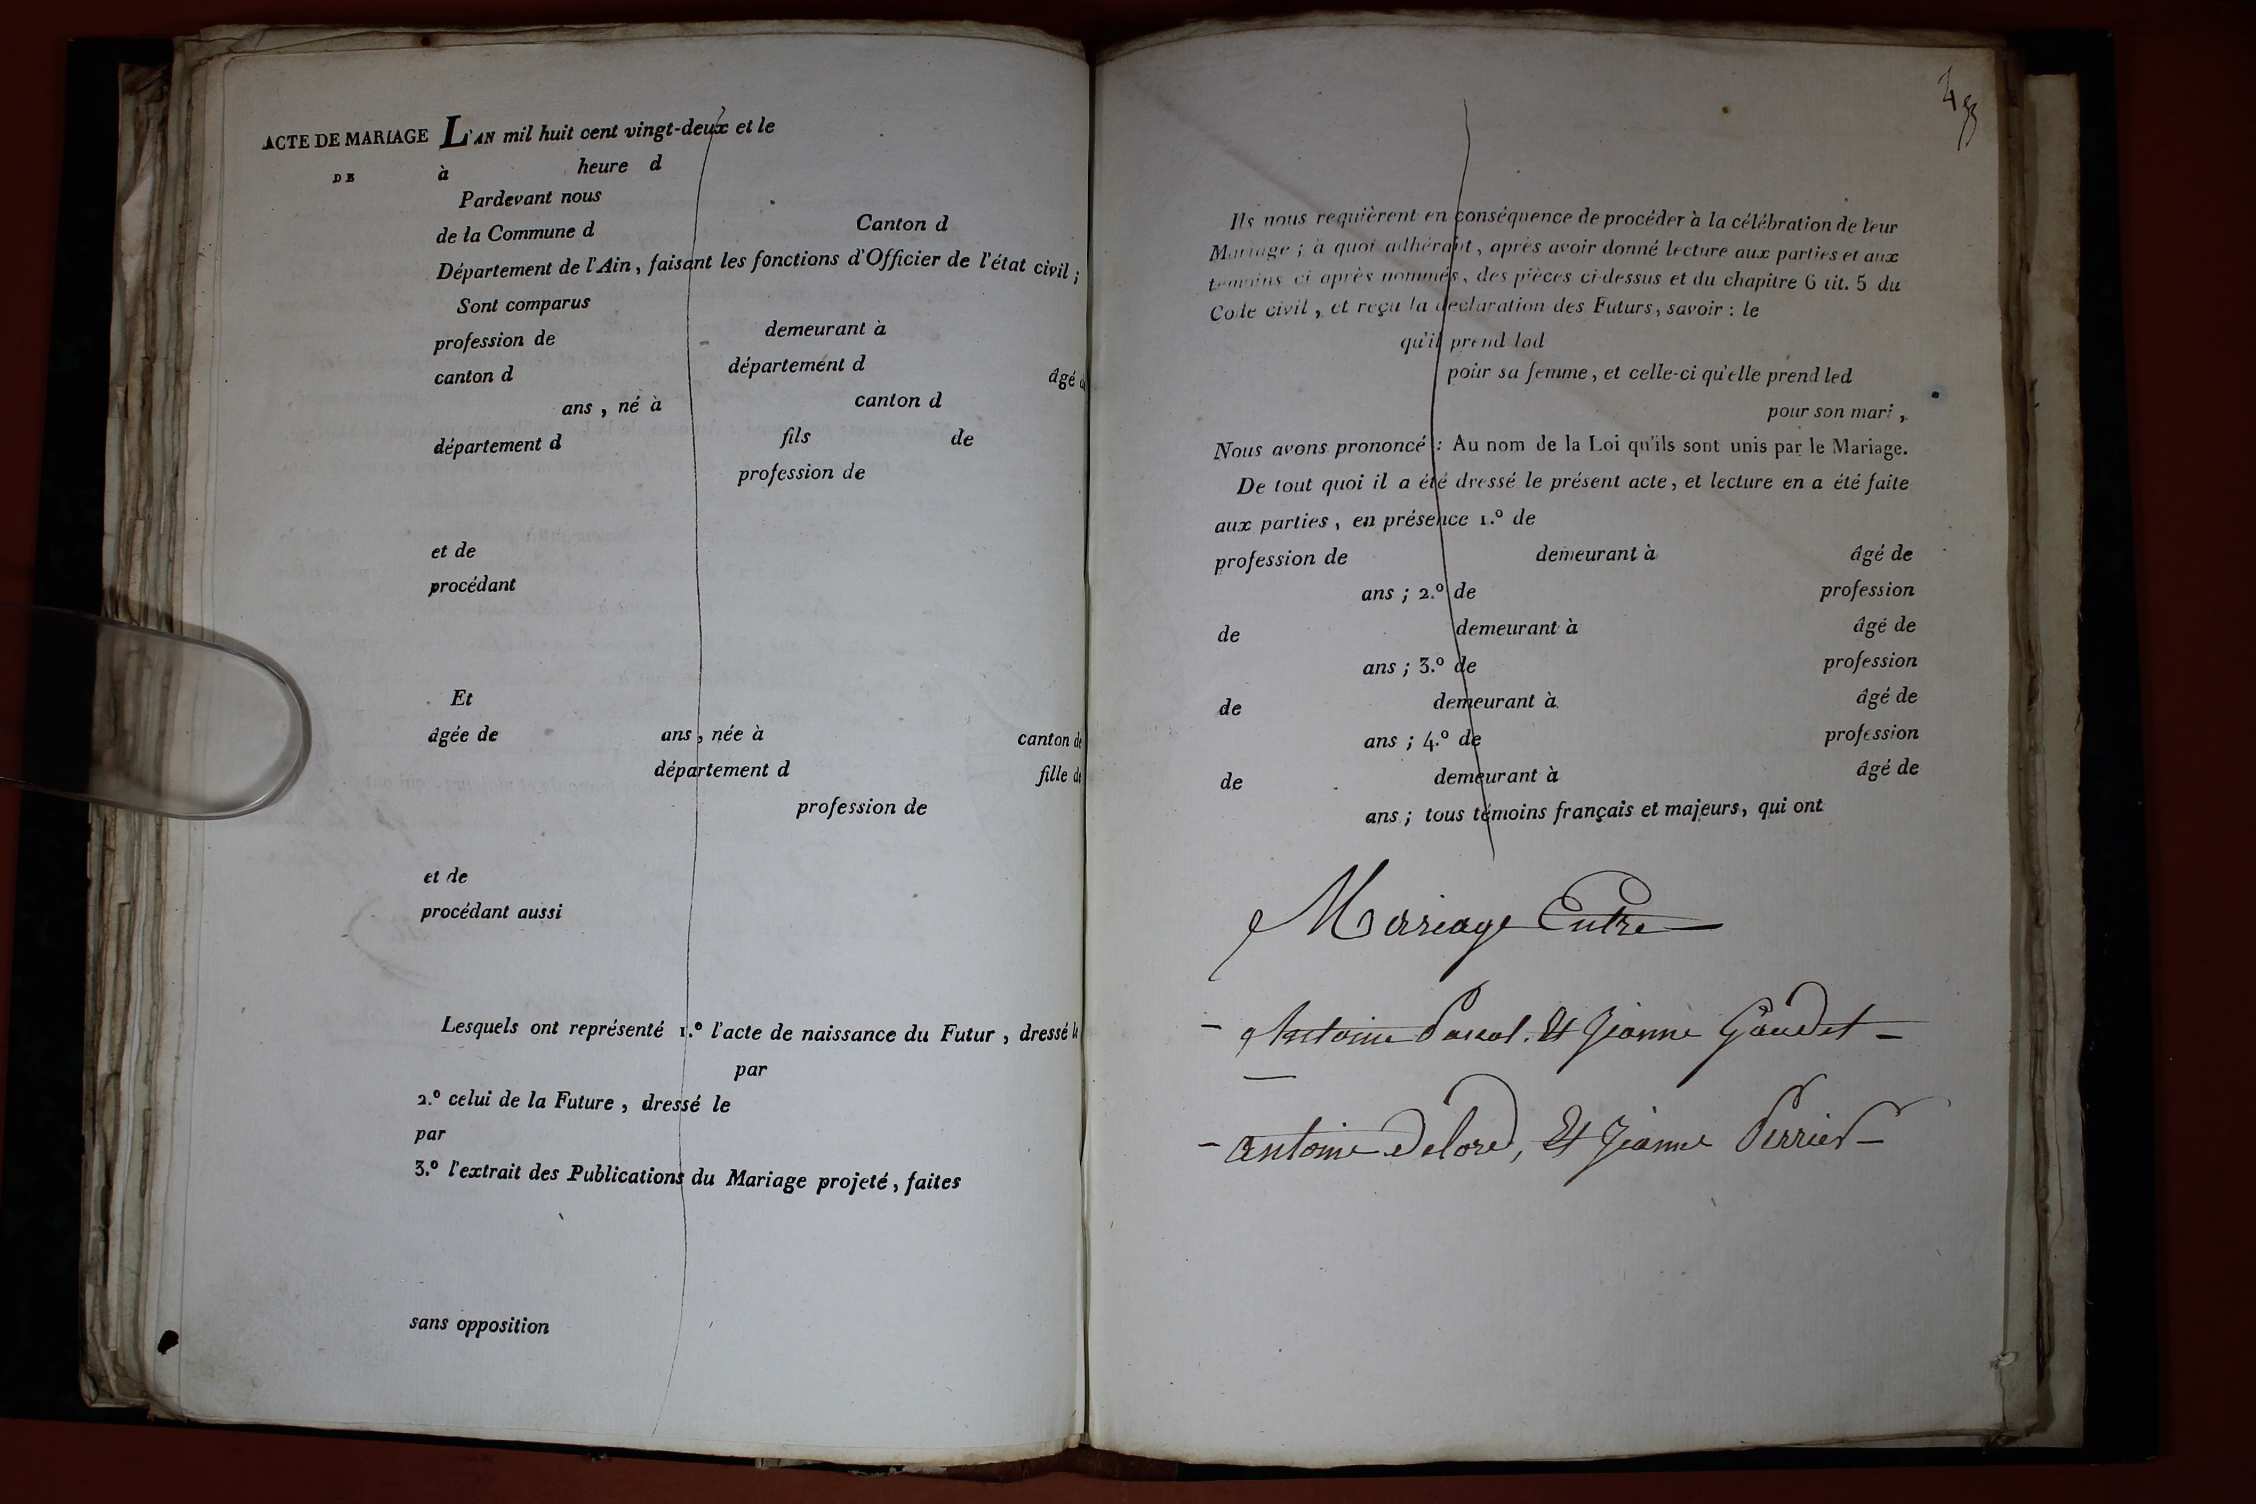 ACTE DE MARIAGE L'AN mil huit cent vingt-deux et le
DE à heure d
Pardevant nous
de la Commune d Canton d
Département de l'Ain, faisant les fonctions d'Officier de l'état civil;
Sont comparus
profession de demeurant à
canton d département d âgé
ans, né à canton d
département d fils de
profession de
et de
procédant
Et
âgée de ans, née à canton de
département d fille de
profession de
et de
procédant aussi
Lesquels ont représenté 1.º l'acte de naissance du Futur, dressé le
par
2.º celui de la Future, dressé le
par
3.º l'extrait des Publications du Mariage projeté, faites
sans opposition
Ils nous requièrent en conséquence de procéder à la célébration de leur
Mariage; à quoi adhérant, après avoir donné lecture aux parties et aux
témoins ci après nommés, des pièces ci-dessus et du chapitre 6 tit. 5 du
Code civil, et reçu la déclaration des Futurs, savoir: le
qu'il prend lad
pour sa femme, et celle-ci qu'elle prend led
pour son mari,
Nous avons prononcé: Au nom de la Loi qu'ils sont unis par le Mariage.
De tout quoi il a été dressé le présent acte, et lecture en a été faite
aux parties, en présence 1.º de
profession de demeurant à âgé de
ans; 2.º de profession
de demeurant à âgé de
ans; 3.º de profession
de demeurant à âgé de
ans; 4.º de profession
de demeurant à âgé de
ans; tous témoins français et majeurs, qui ont
Mariage Entre
- Antoine Pascal. Et Jeanne Gaudet -
- antoine Delord, Et Jeanne Perrier -